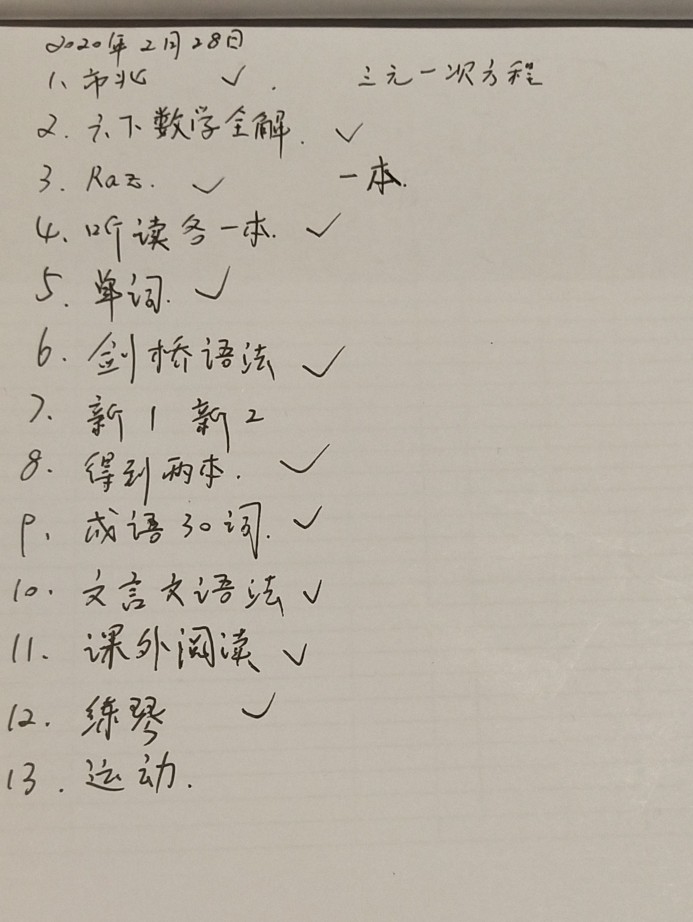 2020年2月28日
1、市北 ✓. 三元一次方程
2. 六下数学全解. ✓
3. Raz. ✓ 一本.
4. 听读各一本. ✓
5. 单词. ✓
6. 剑桥语法 ✓
7. 新1 新2
8. 得到两本. ✓
9、成语30词. ✓
10. 文言文语法 ✓
11. 课外阅读 ✓
12. 练琴 ✓
13. 运动.